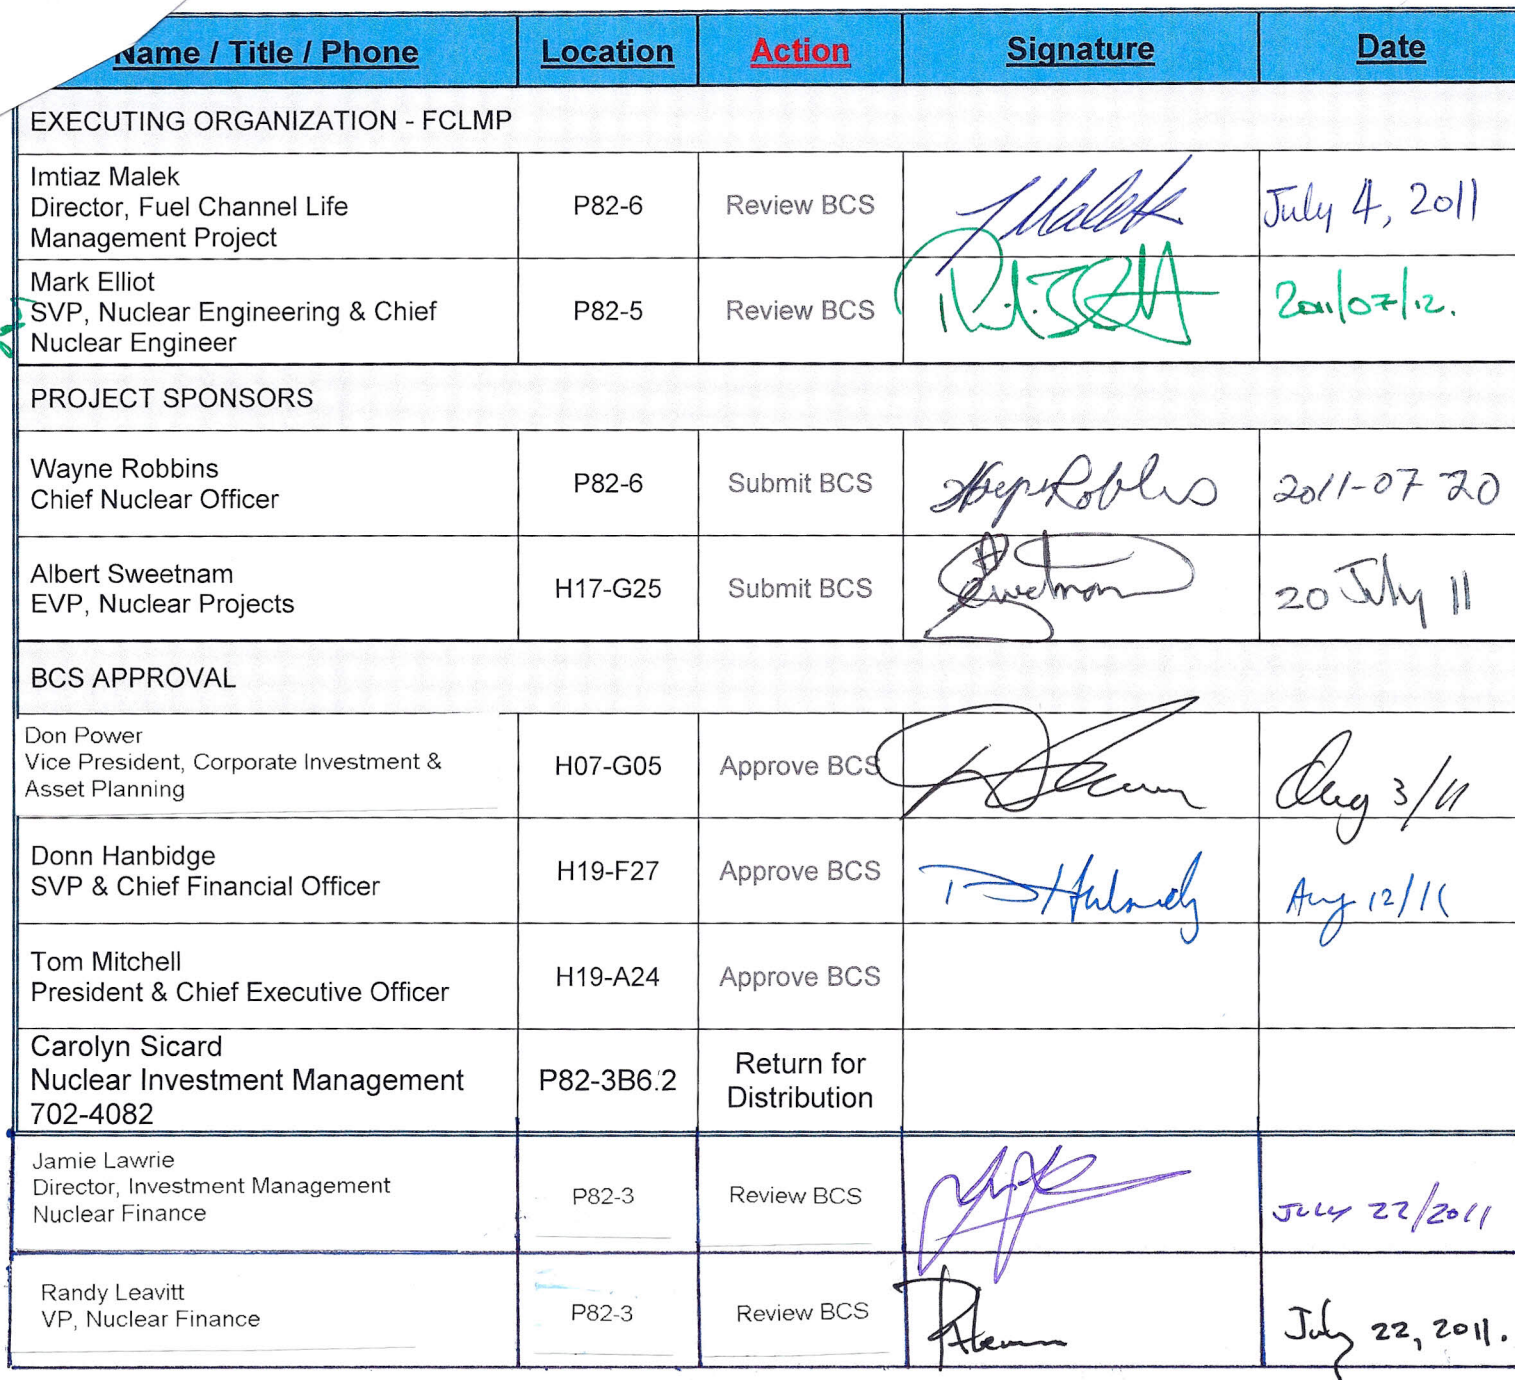 Name / Title / Phone Location Action Signature Date
EXECUTING ORGANIZATION - FCLMP
Imtiaz Malek
Director, Fuel Channel Life
Management Project
P82-6
Review BCS
July 4, 2011
Mark Elliot
SVP, Nuclear Engineering & Chief
Nuclear Engineer
P82-5
Review BCS
2011/07/12.
PROJECT SPONSORS
Wayne Robbins
Chief Nuclear Officer
P82-6
Submit BCS
2011-07 20
Albert Sweetnam
EVP, Nuclear Projects
H17-G25
Submit BCS
20 July 11
BCS APPROVAL
Don Power
Vice President, Corporate Investment &
Asset Planning
H07-G05
Approve BCS
Aug 3/11
Donn Hanbidge
SVP & Chief Financial Officer
H19-F27
Approve BCS
Aug 12/11
Tom Mitchell
President & Chief Executive Officer
H19-A24
Approve BCS
Carolyn Sicard
Nuclear Investment Management
702-4082
P82-3B6.2
Return for
Distribution
Jamie Lawrie
Director, Investment Management
Nuclear Finance
P82-3
Review BCS
July 22/2011
Randy Leavitt
VP, Nuclear Finance
P82-3
Review BCS
July 22, 2011.